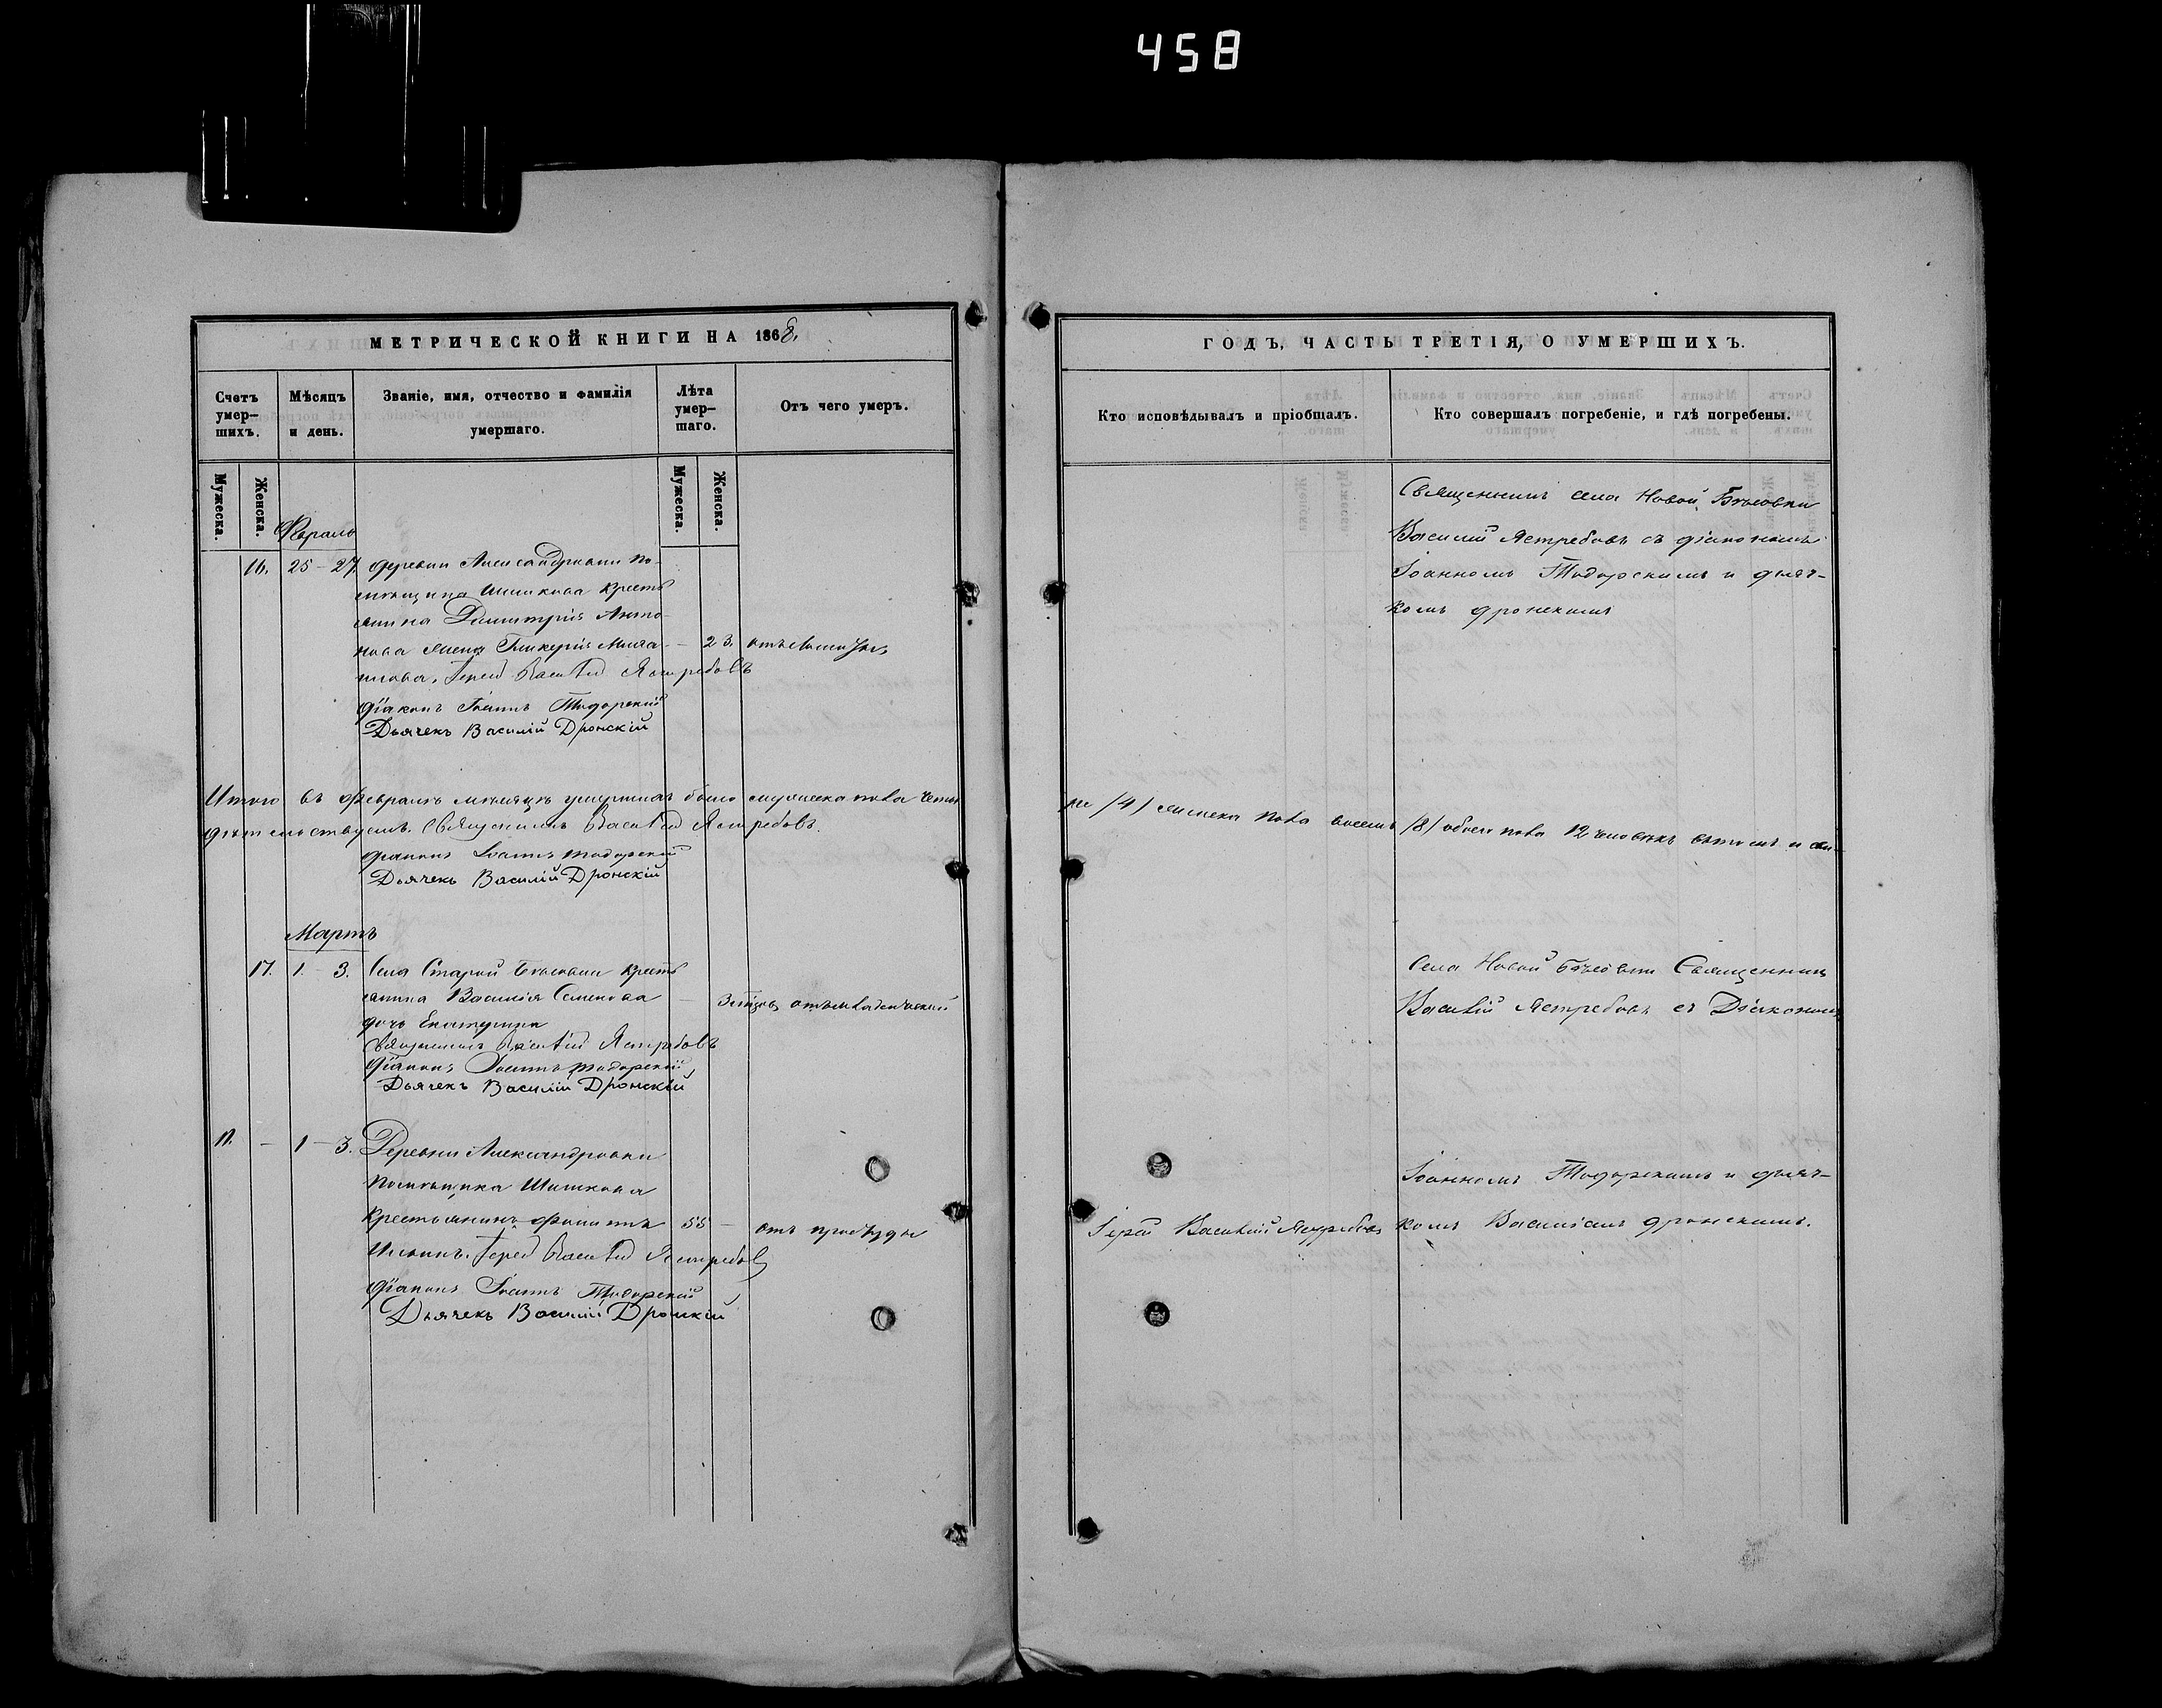 458
МЕТРИЧЕСКОЙ КНИГИ НА 1868.
Счетъ умер-шихъ.
Мѣсяцъ и день.
Званіе, имя, отчество и фамилія умершаго.
Лѣта умер-шаго.
Отъ чего умеръ.
Мужеска.
Женска.
Мужеска.
Женска.
Февраль
16. 25 - 27. деревни Александровки по-
мѣщика Шишкова кресть
янина Димитрія Анто-
нова жена Гликерія — 23.
Іерей Василій Ястребовъ
Діаконъ Іоаннъ Тодорскій
Дьячекъ Василій Дронскій
Итого въ Февралѣ мѣсяцѣ умершихъ было мужеска пола четы
Священникъ Василій Ястребовъ.
Діаконъ Іоаннъ Тодорскій
Дьячекъ Василій Дронскій
Мартъ
17. 1 - 3. Села Старой кресть
янина Василія Семенова —
дочь Екатерина
Священникъ Василій Ястребовъ
Діаконъ Іоаннъ Тодорскій
Дьячекъ Василій Дронскій
11. — 1 - 3. Деревни Александровки
помѣщика Шишкова
крестьянинъ Филиппъ 55 — отъ простуды
Іерей Василій Ястребовъ
Діаконъ Іоаннъ Тодорскій
Дьячекъ Василій Дронскій
ГОДЪ, ЧАСТЬ ТРЕТІЯ, О УМЕРШИХЪ.
Кто исповѣдывалъ и пріобщалъ.
Кто совершалъ погребеніе, и гдѣ погребены.
Священникъ села Новой
Василій Ястребовъ съ діакономъ
Іоанномъ Тодорскимъ и дьяч-
комъ Дронскимъ
ре /4/ женска пола восемь /8/ обоего пола 12 человѣкъ въ томъ и сви-
Села Новой Священникъ
Василій Ястребовъ съ Діакономъ
Іоанномъ Тодорскимъ и дьяч-
Іерей Василій Ястребовъ комъ Василіемъ Дронскимъ.